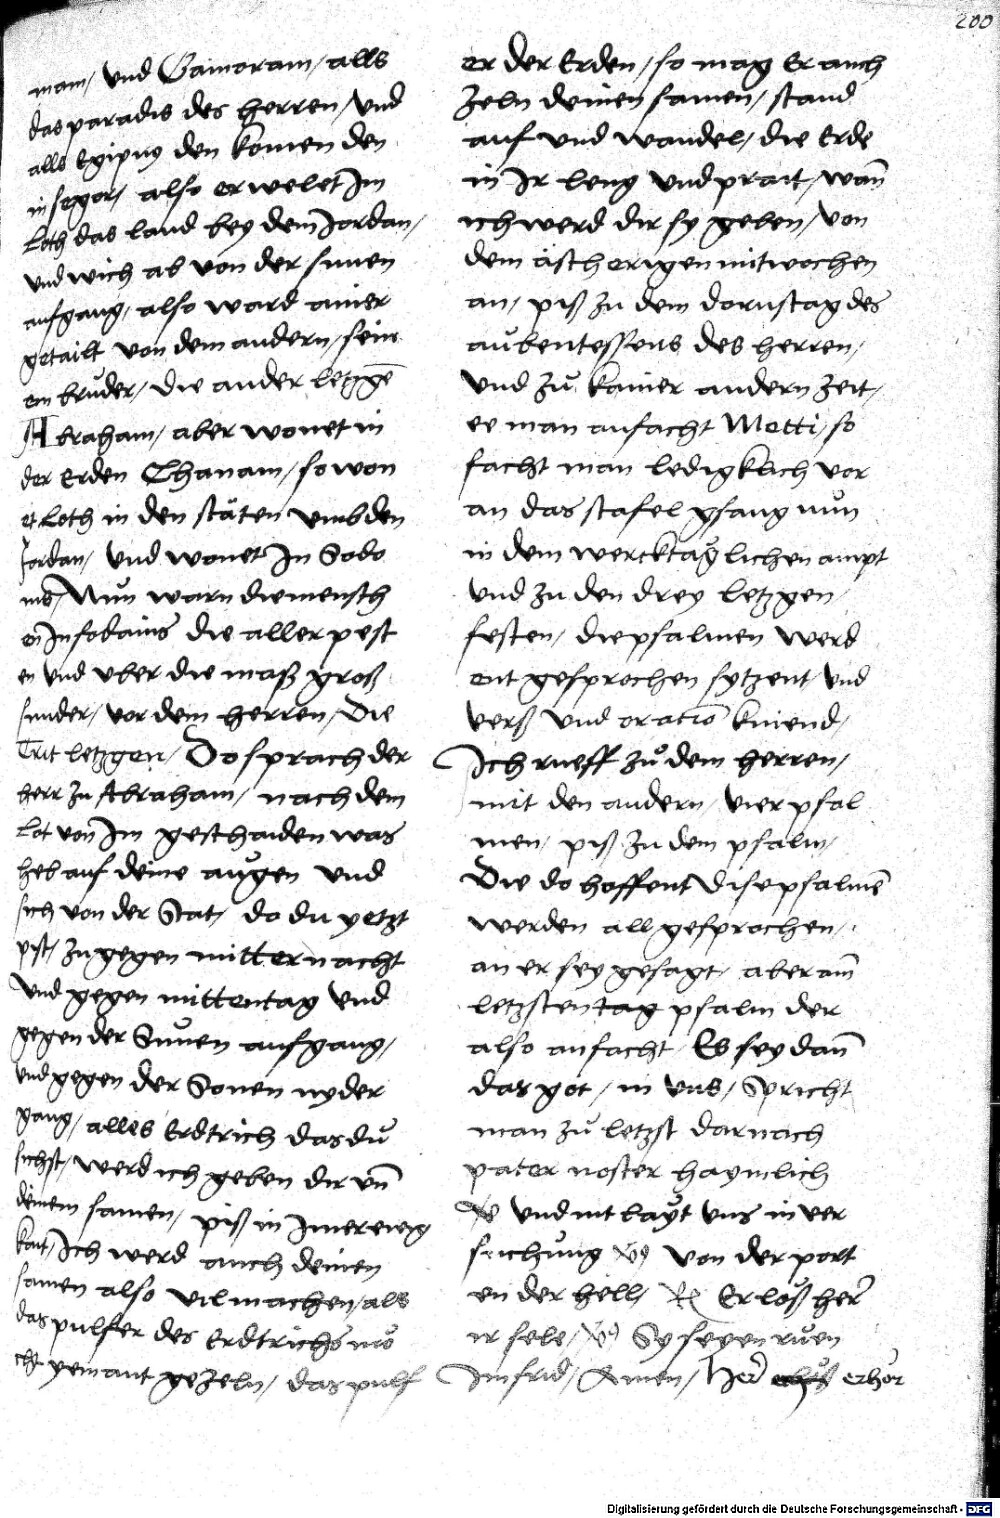 200
mam, und Gamoram, alls
das paradis des herren, und
alls Egipuy den komen den
in segor, also erwelet Im
Loth das land bey dem Jordan,
und wich ab von der sunen
aufgang, also ward ainer
getailt von dem andern, sein
em bruder, die ander letzgē
Abraham, aber wonet in
der Erden Chanam, so won
et Loth in den stäten umb den
Jordan, und wonet In Sodo
mis, Nun warn die mensch
en Infodains die aller pest
en und uber die maß groß
sunder, vor dem herren, Die
Trit letzgen, Do sprach der
herr zu Abraham, nach dem
Lot von Im geschaiden was
heb auf deine augen und
sich von der Stat, da du yetzt
pist, zu gegen mitternacht
und gegen mittentag und
gegen der Sunen aufgang,
und gegen der Sonen nyder
gang, alles Erdtrich das du
sichst, werd ich geben dir uñ
deinem samen, piß in Imer ewig
kait, Ich werd auch deinen
samen also vil machen, als
das pulfer des Erdtrichs mö
cht yemant gezeln, das pulf
er der Erden, so mag Er auch
zeln deinen samen, stand
auf und wandel, die Erde
in Ir leng und prait, wañ
ich werd dir sy geben, von
dem äscherigen mitwochen
an, piß zu dem dornstag des
aubentessens des herren,
und zu kainer andern zeit,
ee man anfacht Metti, so
facht man ledigklich vor
an das stafel gsang nun
in dem wercktäglichen ampt
und zu den drey letzgen
festen, die psalmen werd
ent gesprochen sytzent und
verß und oratiō kniend,
Ich rueff zu dem herren,
mit den andern, vier psal
men, piß zu dem psalm,
Die do hoffent Dise psalmē
werden all gesprochen,
an er sey gesagt, aber am̄
letzsten tag psalm der
also anfacht Es sey dañ
das got, in uns, Spricht
man zu letzst darnach
pater noster haymlich
und nit layt uns in ver
suchung von der port
en der hell, Erloß her̄
ir sele, Sy seyen ruen
Im frid, Amen, Her̄ erhör
Digitalisierung gefördert durch die Deutsche Forschungsgemeinschaft - DFG